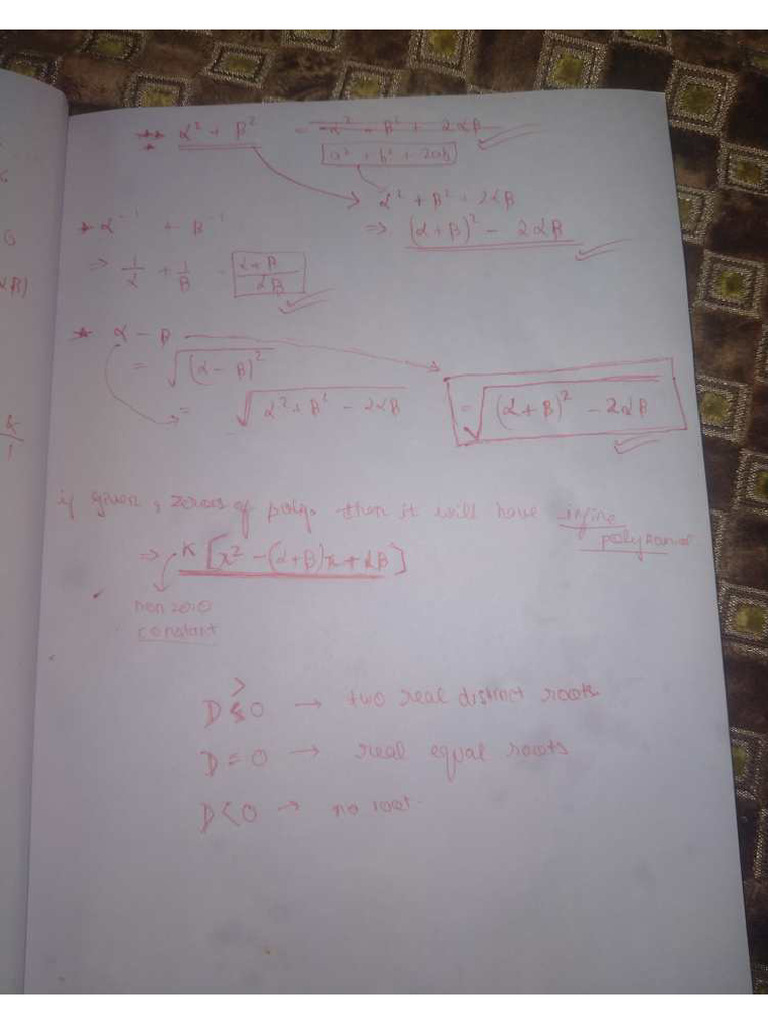 α² + β² = α² - β² + 2αβ
a² + b² + 2ab
α² + β² + 2αβ
* α⁻¹ + β⁻¹
⇒ (α+β)² - 2αβ
⇒ 1/α + 1/β = α+β/αβ
* α - β
= √(α - β)²
= √α² + β² - 2αβ
= √(α + β)² - 2αβ
if given, zeroes of poly. then it will have
polynomial
⇒ K [x² - (α+β)x + αβ]
non zero
constant
D > 0 → two real distinct roots
D = 0 → real equal roots
D < 0 → no root